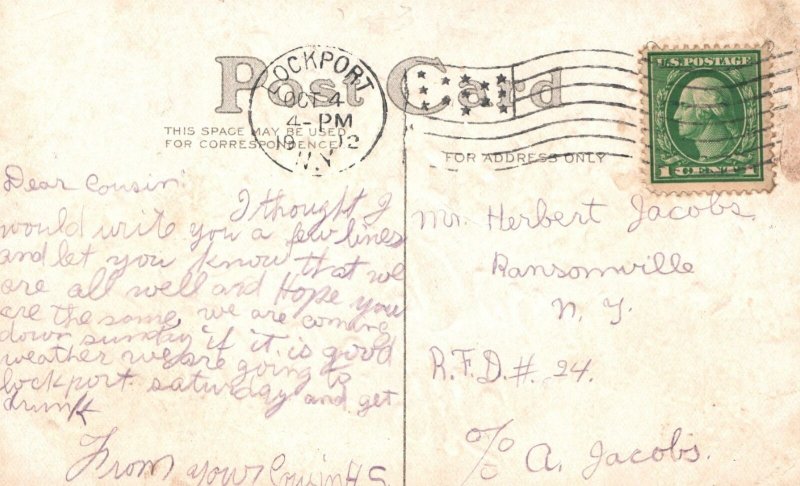 Post Card
LOCKPORT
OCT 4
4-PM
1912
N.Y.
U.S. POSTAGE
1 CENT 1
THIS SPACE MAY BE USED
FOR CORRESPONDENCE
FOR ADDRESS ONLY
Dear Cousin:
I thought I
would write you a few lines
and let you know that we
are all well and Hope you
are the same, we are coming
down sunday if it is good
weather we are going to
lockport saturday and get
drunk
From your Cousin H S
Mr. Herbert Jacobs
Ransomville
N. Y.
R.F.D. #. 24.
c/o A. Jacobs.